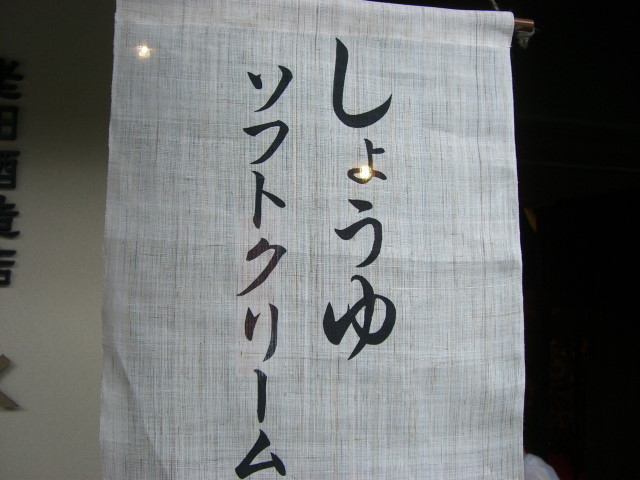 しょうゆ
ソフトクリーム
老田酒造店